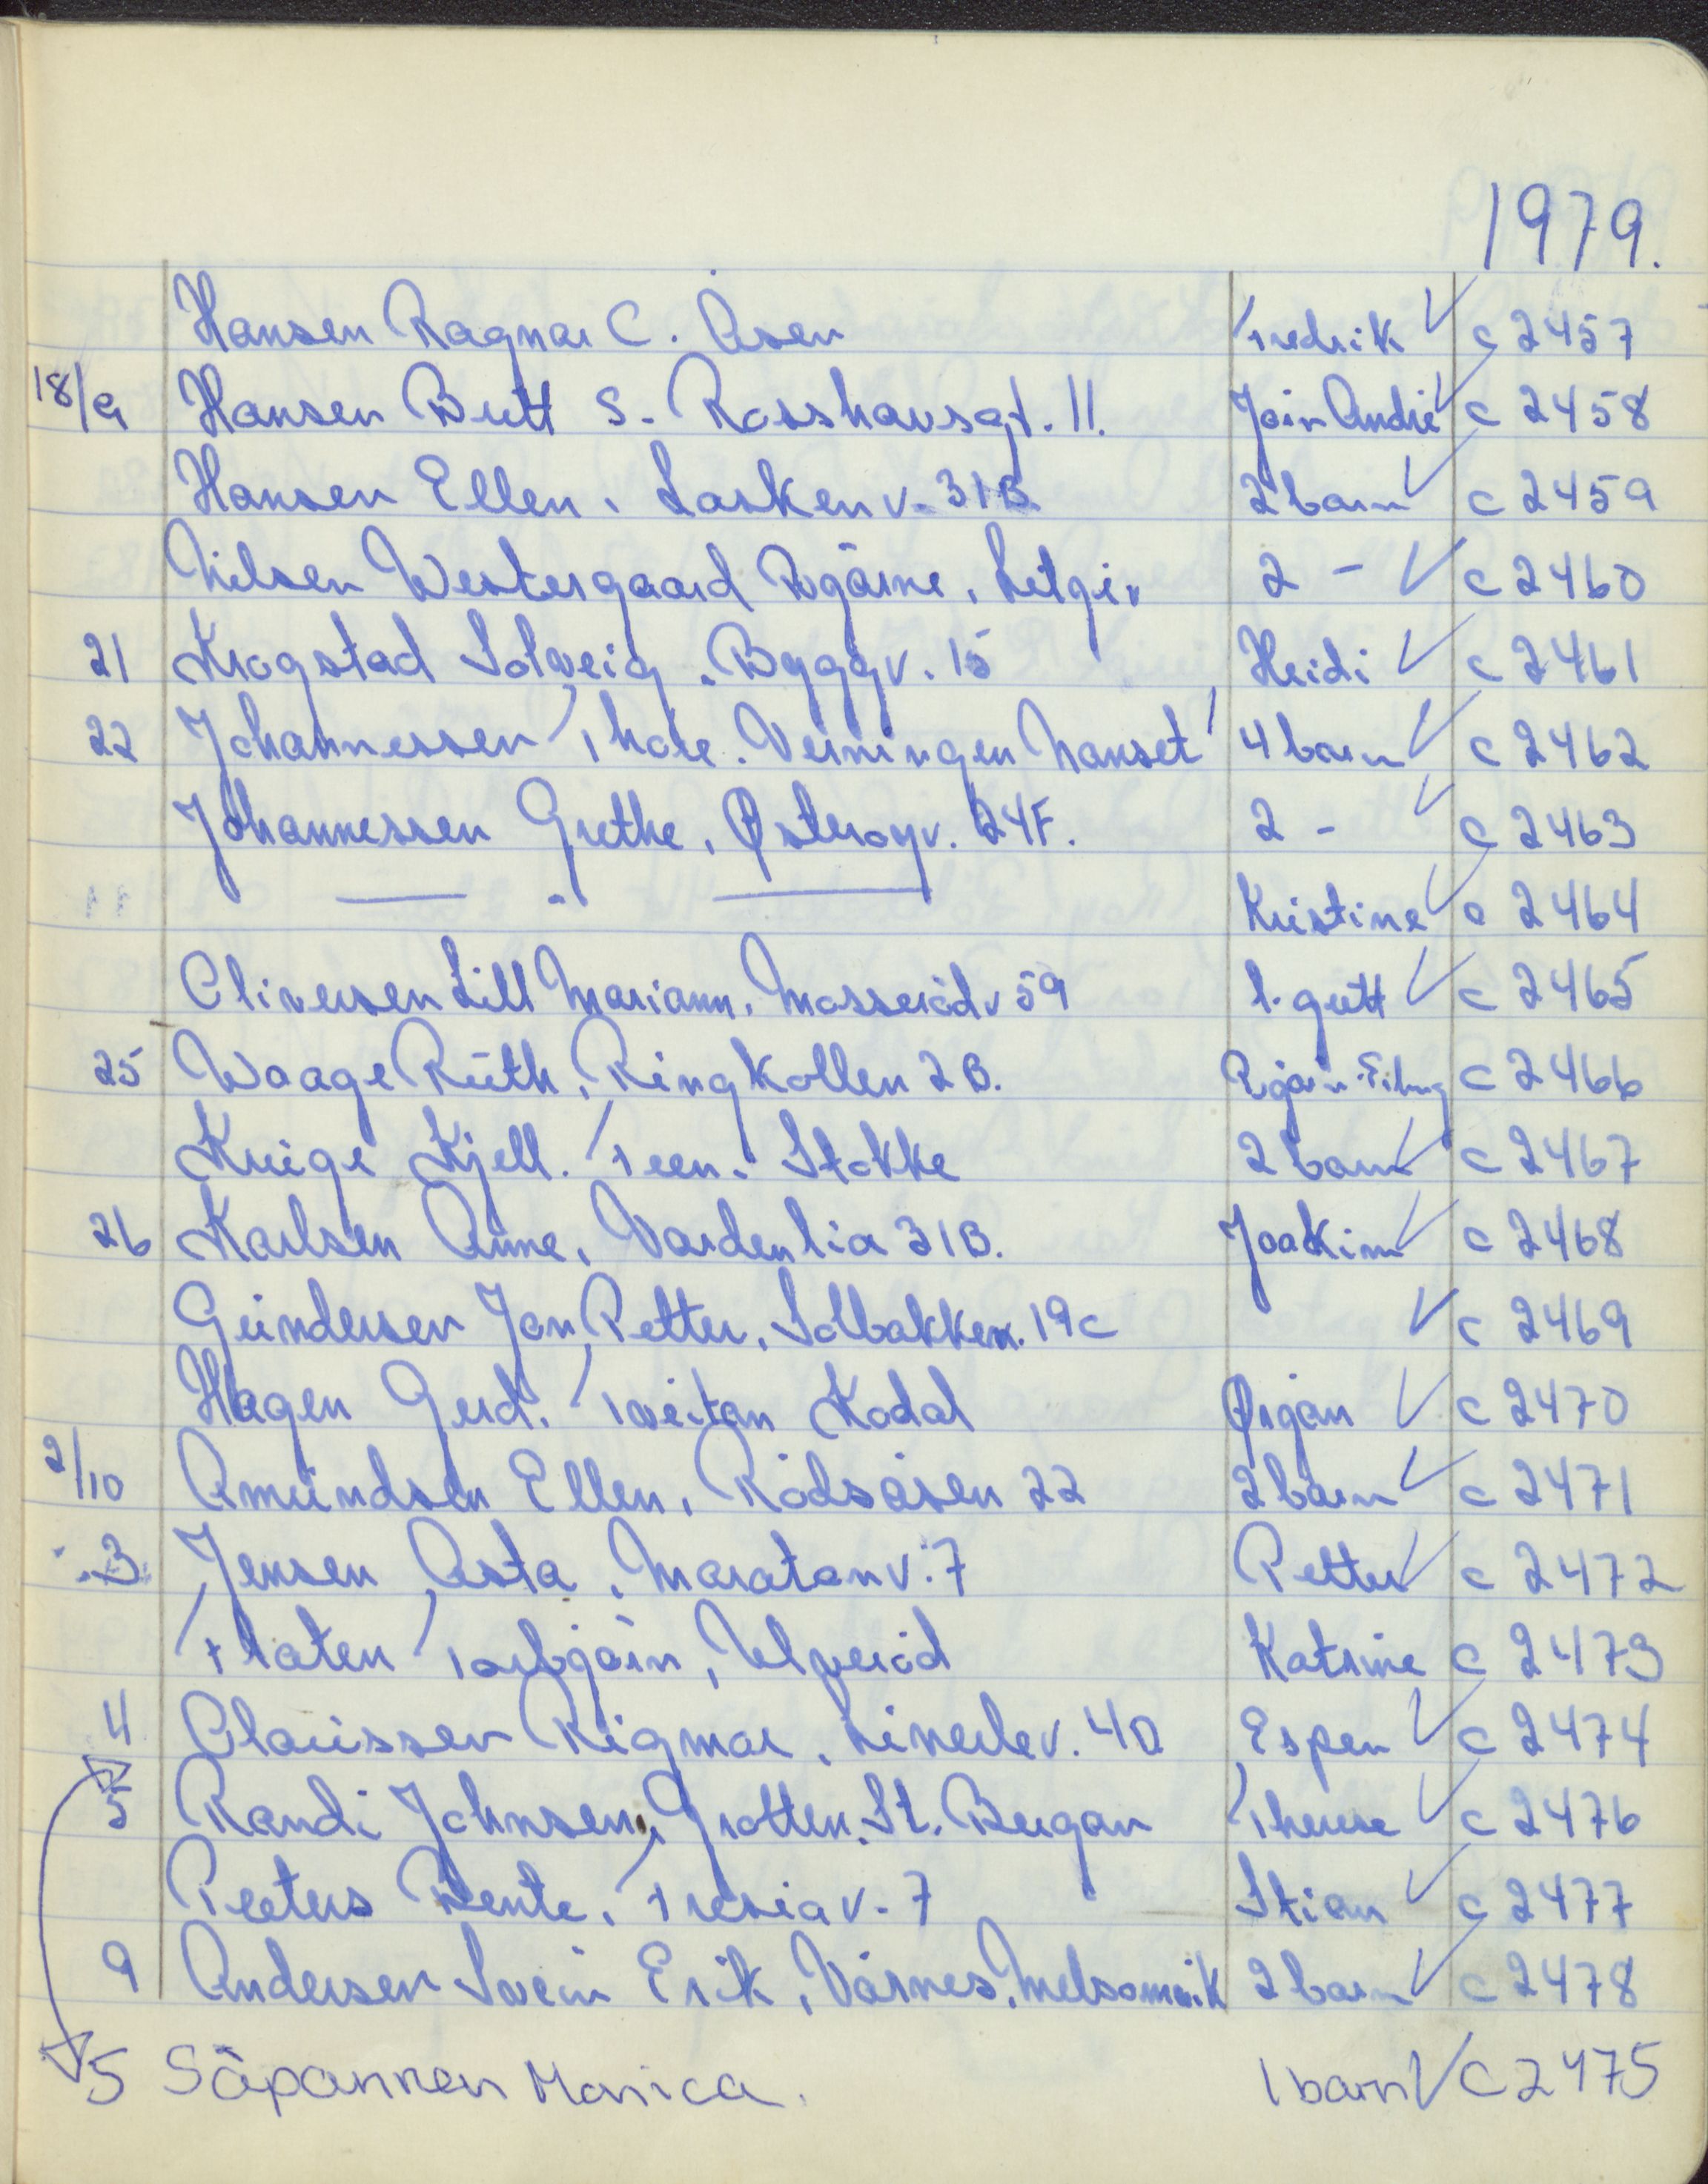 1979.
Hansen Ragnar C. Åsen Fredrik ✓ c 2457
18/9 Hansen Britt S. Rosshavsgt. 11. Jørn André ✓ c 2458
Hansen Ellen, Laskenv. 31B. 2 barn ✓ c 2459
Nilsen Westergaard Bjørne, 2 - ✓ c 2460
21 Krogstad Solveig. Byggv. 15 Heidi ✓ c 2461
22 Johannessen Thore. Verningen Nanset 4 barn ✓ c 2462
Johannessen Grethe, Østerøyv. 24F. 2 - ✓ c 2463
— " — Kristine ✓ c 2464
Oliversen Lill Mariann, Mosserødv 59 l. gutt ✓ c 2465
25 Waage Ruth, Ringkollen 2B. c 2466
Krige Kjell. Feen. Stokke 2 barn ✓ c 2467
26 Karlsen Anne, Vardenlia 31B. Joakim ✓ c 2468
Gundersen Jon Petter, Solbakken. 19c ✓ c 2469
Hagen Gerd. Tveitan Kodal Ørjan ✓ c 2470
2/10 Amundsen Ellen, Rødsåsen 22 2 barn ✓ c 2471
3 Jensen Asta, Maratonv. 7 Petter ✓ c 2472
Flåten Torbjørn, Ulverød Katrine c 2473
4 Claussen Rigmor, Linerlev. 4D Espen ✓ c 2474
5 Randi Johnsen, Grotten, St. Bergan Therese ✓ c 2476
Peeters Bente, Fresiav. 7 Stian ✓ c 2477
9 Andersen Svein Erik, Vårnes, Melsomvik 2 barn ✓ c 2478
5 Säpannen Monica. 1 barn ✓ c 2475